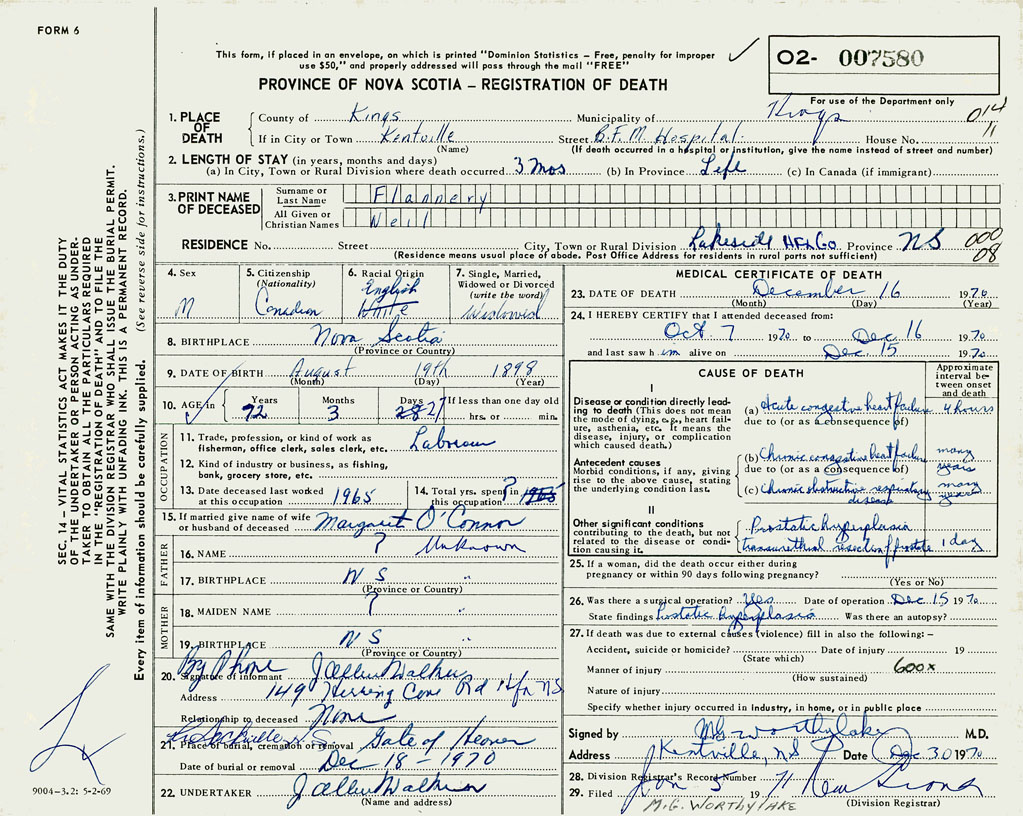 FORM 6
This form, if placed in an envelope, on which is printed "Dominion Statistics – Free, penalty for improper
use $50," and properly addressed will pass through the mail "FREE"
02- 007580
PROVINCE OF NOVA SCOTIA – REGISTRATION OF DEATH
For use of the Department only
014
11
1. PLACE OF DEATH County of Kings Municipality of Kings
If in City or Town Kentville Street B.F.M. Hospital. House No.
(Name) (If death occurred in a hospital or institution, give the name instead of street and number)
2. LENGTH OF STAY (in years, months and days)
(a) In City, Town or Rural Division where death occurred 3 Mos (b) In Province Life (c) In Canada (if immigrant)
3. PRINT NAME OF DECEASED Surname or Last Name Flannery
All Given or Christian Names Neil
RESIDENCE No. Street City, Town or Rural Division Lakeside Hfx Co. Province NS 000
08
(Residence means usual place of abode. Post Office Address for residents in rural parts not sufficient)
SEC. 14 – VITAL STATISTICS ACT MAKES IT THE DUTY
OF THE UNDERTAKER OR PERSON ACTING AS UNDER-
TAKER TO OBTAIN ALL THE PARTICULARS REQUIRED
IN THE "REGISTRATION OF DEATH" AND TO FILE THE
SAME WITH THE DIVISION REGISTRAR WHO SHALL ISSUE THE BURIAL PERMIT.
WRITE PLAINLY WITH UNFADING INK. THIS IS A PERMANENT RECORD.
Every item of information should be carefully supplied. (See reverse side for instructions.)
4. Sex 5. Citizenship 6. Racial Origin 7. Single, Married,
(Nationality) English Widowed or Divorced
(write the word)
M Canadian White Widowed
8. BIRTHPLACE Nova Scotia
(Province or Country)
9. DATE OF BIRTH August 19th 1898
(Month) (Day) (Year)
10. AGE in Years Months Days If less than one day old
72 3 28 27 hrs. or min.
OCCUPATION
11. Trade, profession, or kind of work as
fisherman, office clerk, sales clerk, etc. Labourer
12. Kind of industry or business, as fishing,
bank, grocery store, etc.
13. Date deceased last worked at this occupation 1965 14. Total yrs. spent in this occupation ? 1965
15. If married give name of wife
or husband of deceased Margaret O'Connor
FATHER
16. NAME ? Unknown
17. BIRTHPLACE N S "
(Province or Country)
MOTHER
18. MAIDEN NAME ? "
19. BIRTHPLACE N S "
(Province or Country)
By Phone
20. Signature of informant J Allen Walker
Address 149 Herring Cove Rd Hfx NS
Relationship to deceased None
Lr Sackville N.S.
21. Place of burial, cremation or removal Gate of Heaven
Date of burial or removal Dec 18 – 1970
22. UNDERTAKER J Allen Walker
(Name and address)
9004-3.2: 5-2-69
MEDICAL CERTIFICATE OF DEATH
23. DATE OF DEATH December 16 1970
(Month) (Day) (Year)
24. I HEREBY CERTIFY that I attended deceased from:
Oct 7 1970 to Dec 16 1970
and last saw h im alive on Dec. 15 1970
CAUSE OF DEATH
Approximate interval between onset and death
I
Disease or condition directly leading to death (This does not mean the mode of dying, e.g., heart failure, asthenia, etc. It means the disease, injury, or complication which caused death.)
(a) Acute congestive heart failure 4 hours
due to (or as a consequence of)
Antecedent causes
Morbid conditions, if any, giving rise to the above cause, stating the underlying condition last.
(b) Chronic congestive heart failure many years
due to (or as a consequence of)
(c) Chronic obstructive respiratory disease many years
II
Other significant conditions
contributing to the death, but not related to the disease or condition causing it.
Prostatic hyperplasia
transurethral resection of prostate 1 day
25. If a woman, did the death occur either during
pregnancy or within 90 days following pregnancy?
(Yes or No)
26. Was there a surgical operation? Yes Date of operation Dec 15 1970
State findings Prostatic hyperplasia Was there an autopsy?
27. If death was due to external causes (violence) fill in also the following: –
Accident, suicide or homicide? Date of injury 19
(State which)
Manner of injury 600x
(How sustained)
Nature of injury
Specify whether injury occurred in industry, in home, or in public place
Signed by MG Worthylake M.D.
Address Kentville, NS Date Dec 30 1970
28. Division Registrar's Record Number
29. Filed Jan 5 1971
(Division Registrar)
M.G. WORTHYLAKE